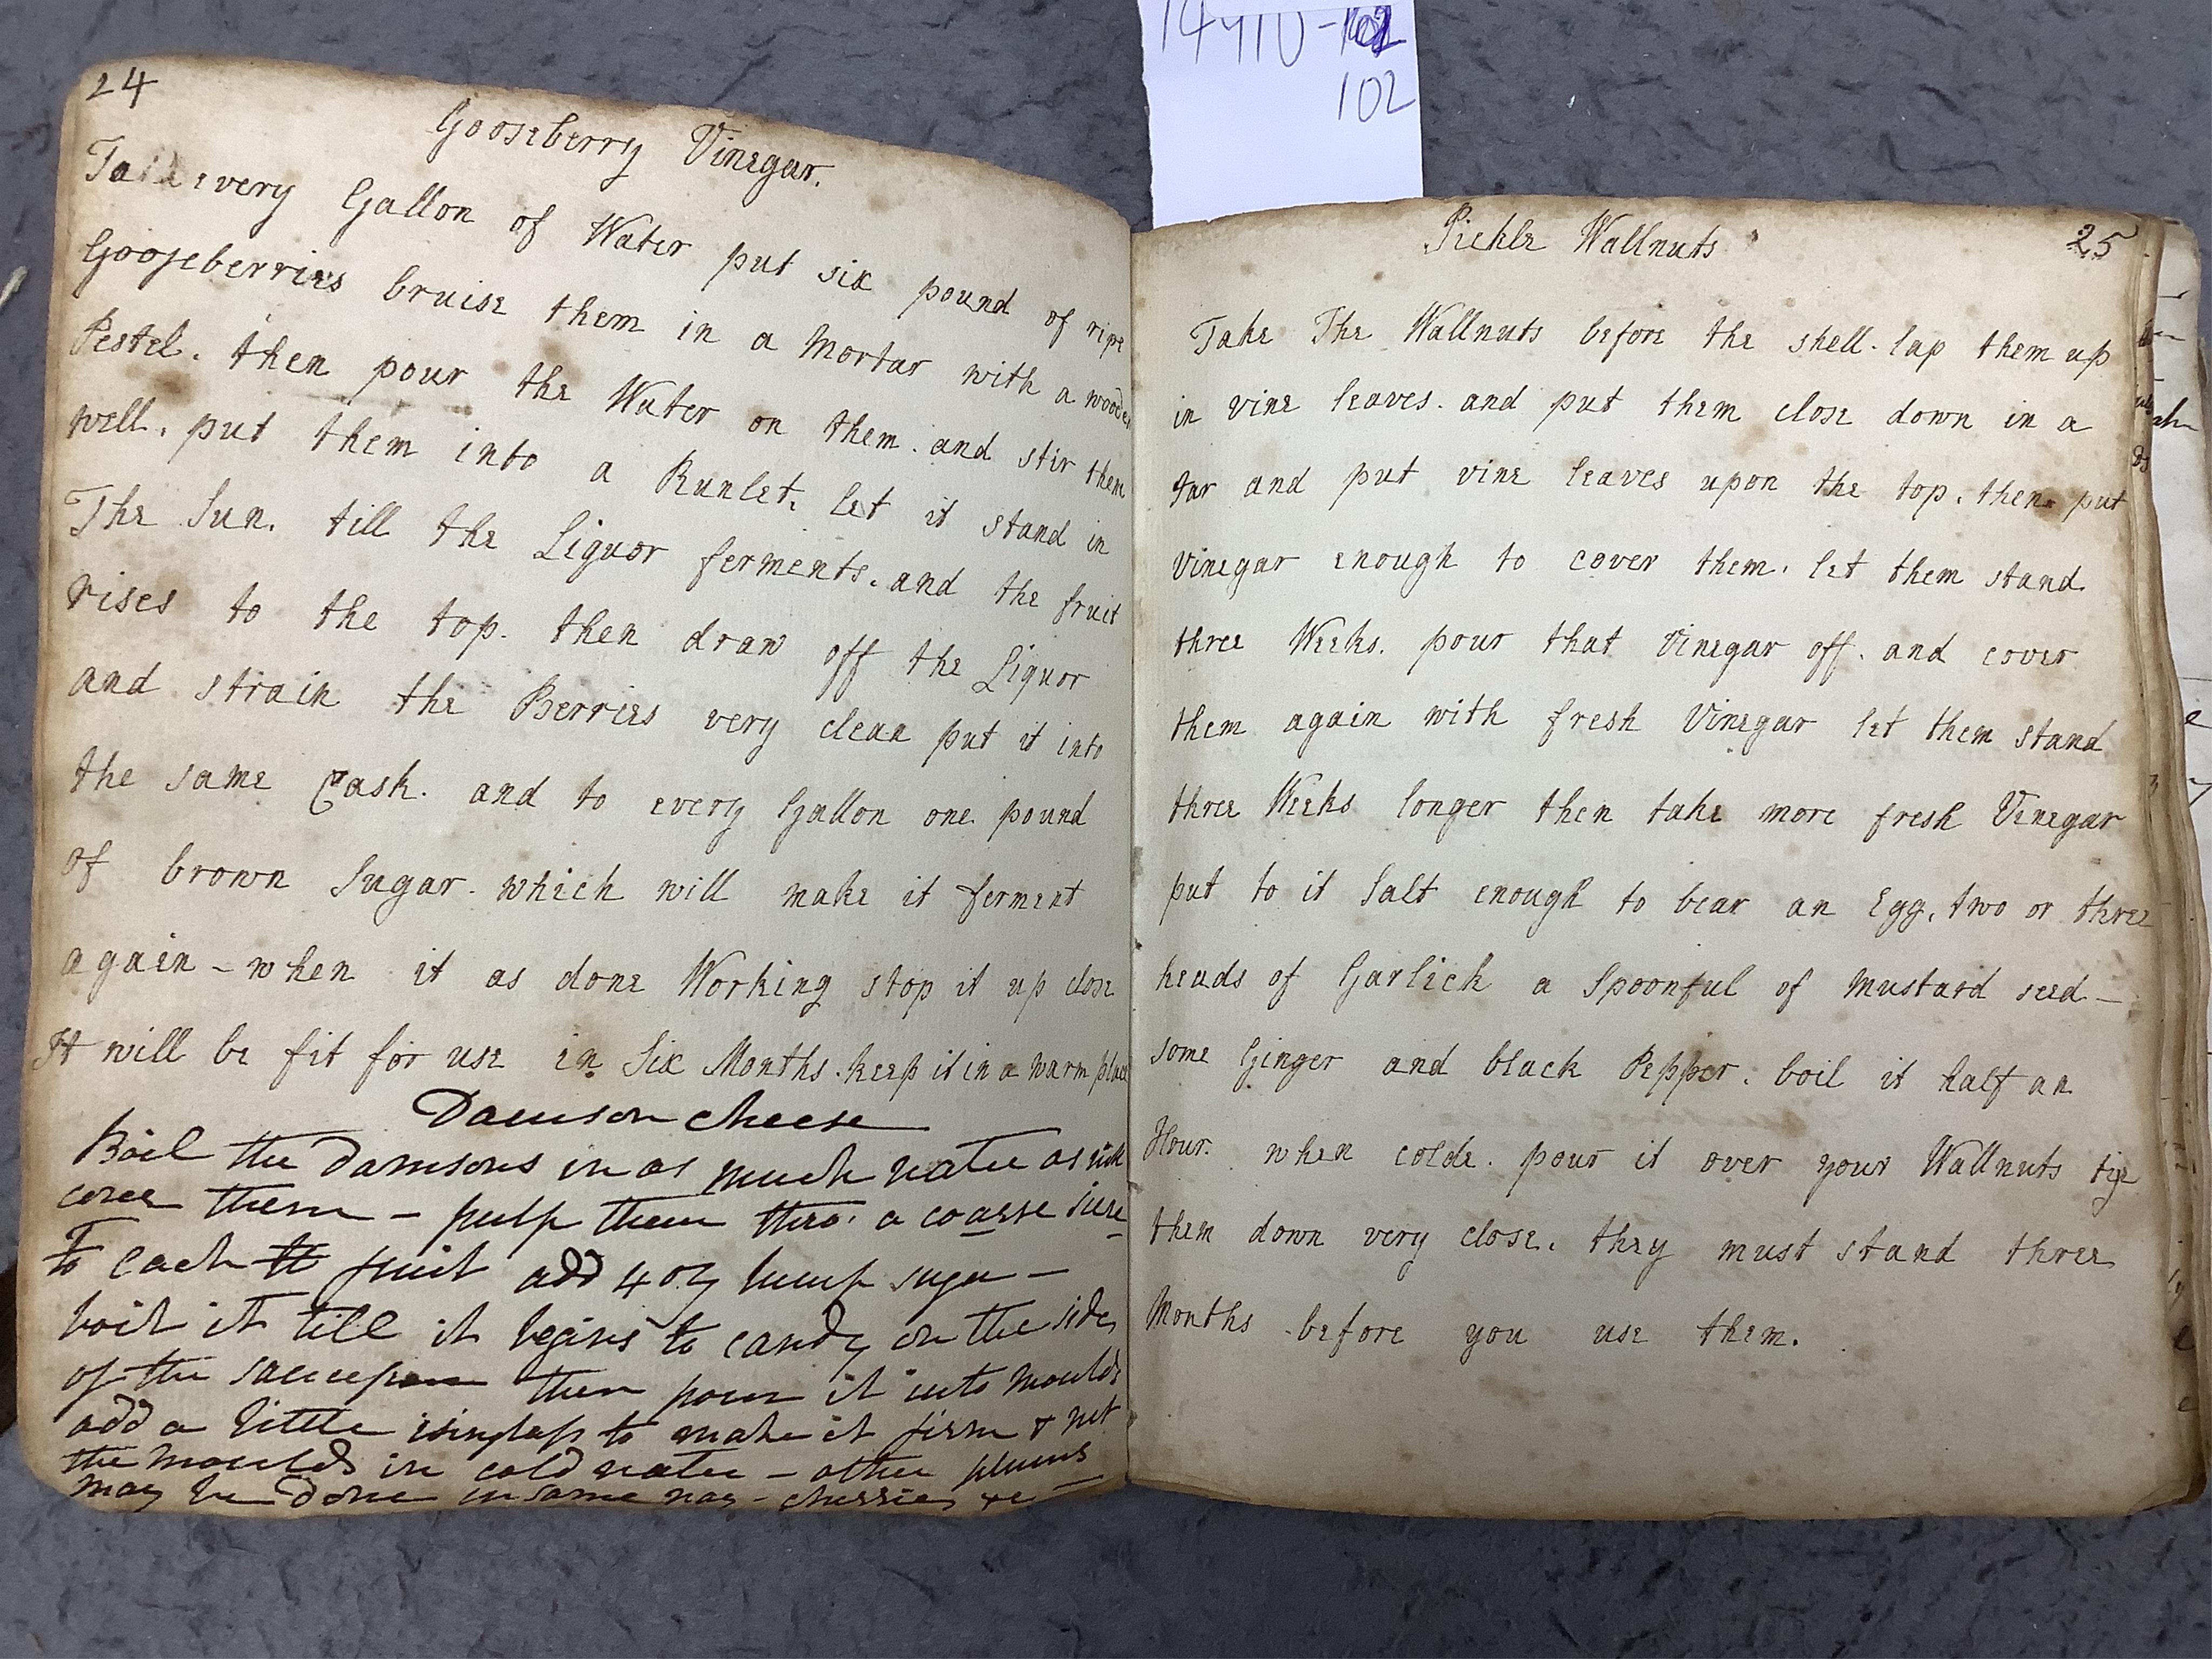 14410-102
102
24
Gooseberry Vinegar.
To every Gallon of Water put six pound of ripe
Gooseberries bruise them in a Mortar with a wooden
Pestel. then pour the Water on them. and stir them
well. put them into a Runlet. let it stand in
The Sun. till the Liquor ferments. and the fruit
rises to the top. then draw off the Liquor
and strain the Berries very clean put it into
the same Cask. and to every Gallon one pound
of brown Sugar. which will make it ferment
again - when it as done Working stop it up close
It will be fit for use in Six Months. keep it in a warm place
Damson Cheese
Boil the damsons in as much water as will
cover them - pulp them thro' a coarse sieve
To each lb fruit add 4 oz lump sugar -
boil it till it begins to candy on the sides
of the saucepan then pour it into moulds
add a little isinglass to make it firm & wet
the moulds in cold water - other plums
may be done in same way - cherries &c -
Pickle Wallnuts
25
Take The Wallnuts before the shell. lap them up
in vine leaves. and put them close down in a
Jar and put vine leaves upon the top. then put
Vinegar enough to cover them. let them stand
three Weeks. pour that Vinegar off. and cover
them again with fresh Vinegar let them stand
three Weeks longer then take more fresh Vinegar
put to it Salt enough to bear an Egg. two or three
heads of Garlick a Spoonful of Mustard seed -
some Ginger and black Pepper. boil it half an
Hour. when colde. pour it over your Wallnuts tye
them down very close. they must stand three
Months before you use them.